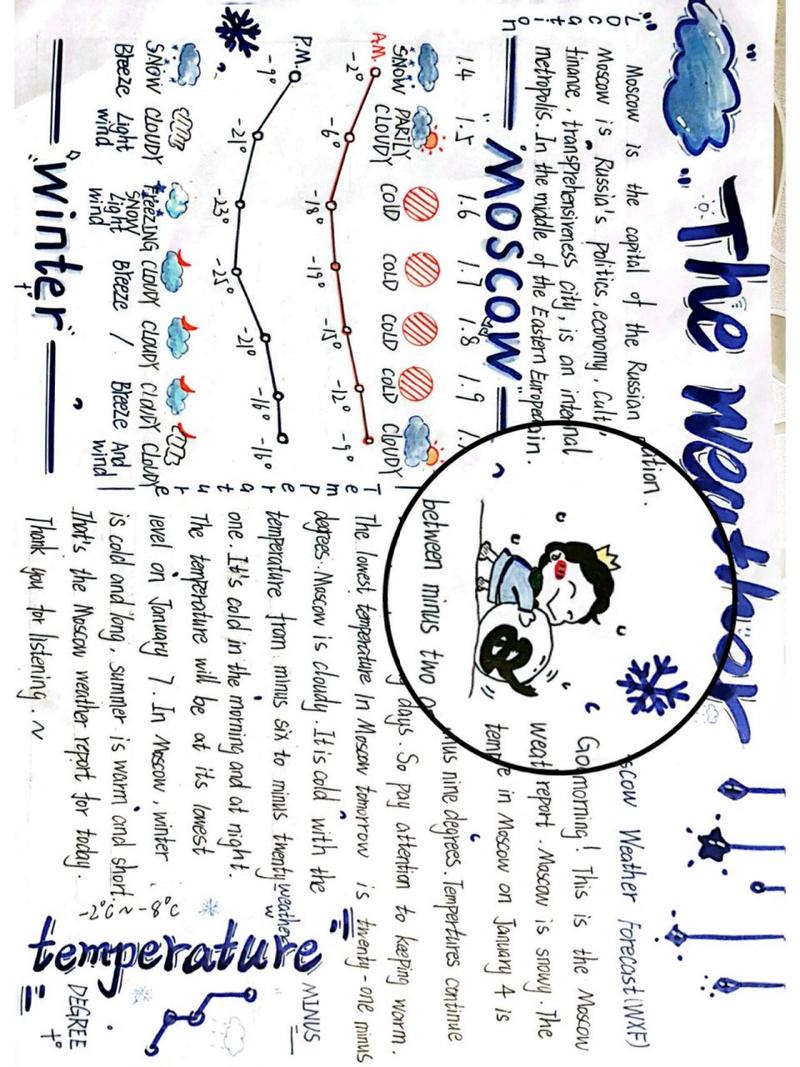 The Weather
Location
Moscow is the capital of the Russian
Moscow is Russia's politics, economy, Cult
finance, transprehensiveness city, is an internal
metropolis. In the middle of the Eastern European
MOSCOW
1.4 1.5 1.6 1.7 1.8 1.9
SNOW PARTLY CLOUDY COLD COLD COLD COLD CLOUDY
A.M.
-2° -6° -18° -19° -15° -12° -9°
P.M.
-9° -21° -23° -25° -21° -16° -16°
SNOW CLOUDY FREEZING SNOW CLOUDY CLOUDY CLOUDY CLOUDY
Breeze Light wind Light wind Breeze / Breeze And wind
Winter
Temperature
scow Weather Forecast (WXF)
Go morning! This is the Moscow
weat report. Moscow is snowy. The
temp e in Moscow on January 4 is
between minus two nus nine degrees. Tempertures continue
days. So pay attention to keeping worm.
The lowest temperature In Moscow tomorrow is twenty-one minus
degrees. Moscow is cloudy. It is cold with the
temperature from minus six to minus twenty
one. It's cold in the morning and at night.
The temperature will be at its lowest
level on January 7. In Moscow, winter
is cold and long, summer is warm and short.
That's the Moscow weather report for today.
Thank you for listening. ~
weather
MINUS
temperature
-2°C ~ -8°C
DEGREE